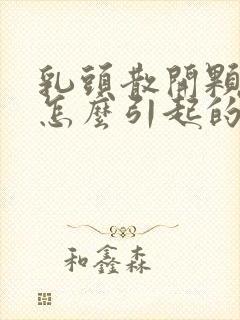 乳頭散開顆
怎麼引起的
和鑫森